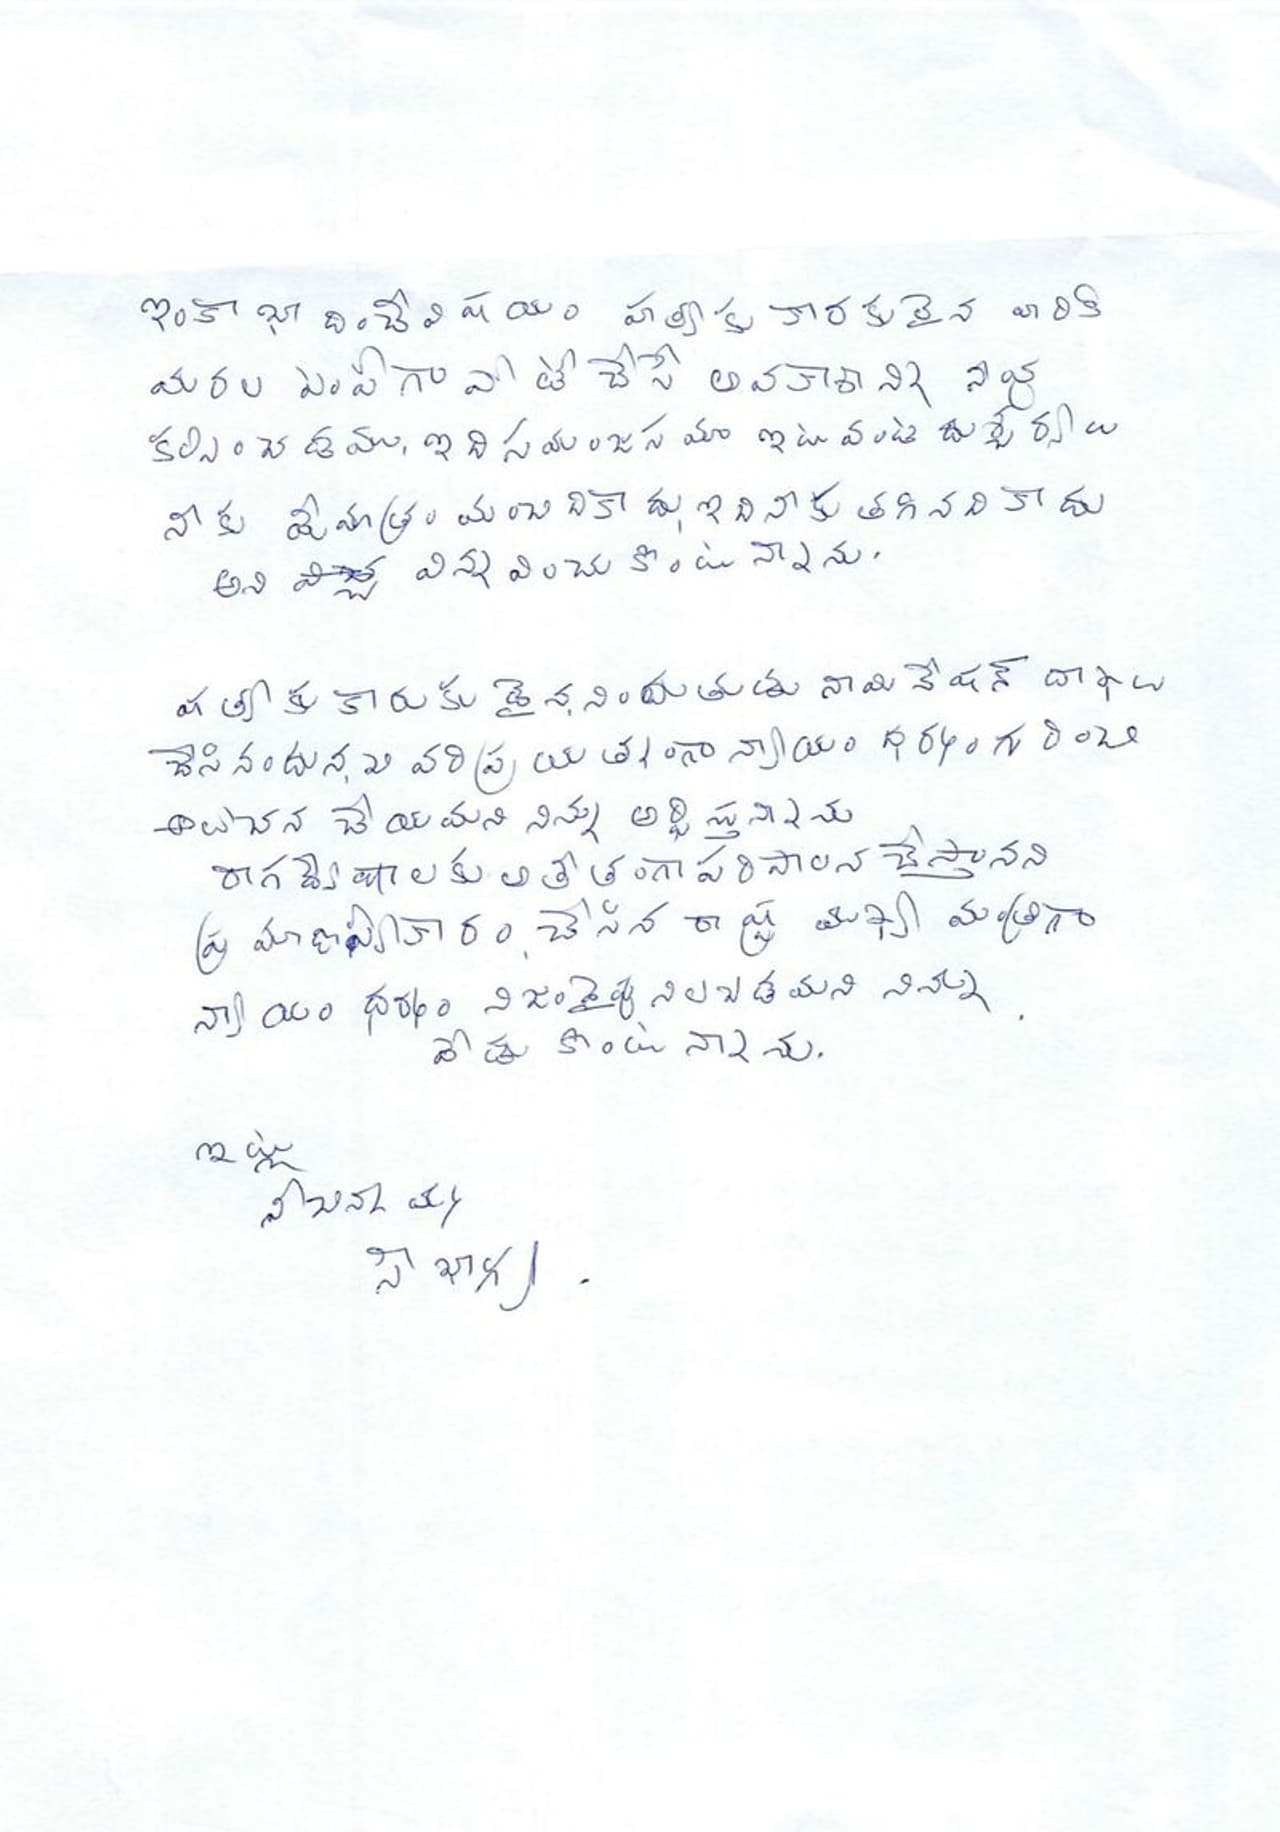 ఇంకా భాదించేవిషయం హత్యకు కారకులైన వారికి
మరల ఎంపీగా పోటీ చేసే అవకాశాన్ని నీవు
కల్పించడము. ఇది సమంజసమా ఇటువంటి దుశ్చర్యలు
నీకు ఏమాత్రం మంచిదికాదు, ఇది నీకు తగినది కాదు
అని విన్నవించు కొంటున్నాను.
హత్యకు కారుకుడైన, నిందుతుడు నామినేషన్ దాఖలు
చేసినందున, చివరి ప్రయత్నంగా న్యాయం ధర్మం గురించి
ఆలోచన చేయమని నిన్ను అర్థిస్తున్నాను
రాగద్వేషాలకు అతీతంగా పరిపాలన చేస్తానని
ప్రమాణస్వీకారం, చేసిన రాష్ట్ర ముఖ్య మంత్రిగా
న్యాయం ధర్మం నిజంవైపు నిలబడమని నిన్ను
వేడు కొంటున్నాను.
ఇట్లు
నీచిన్నమ్మ
సౌభాగ్య.